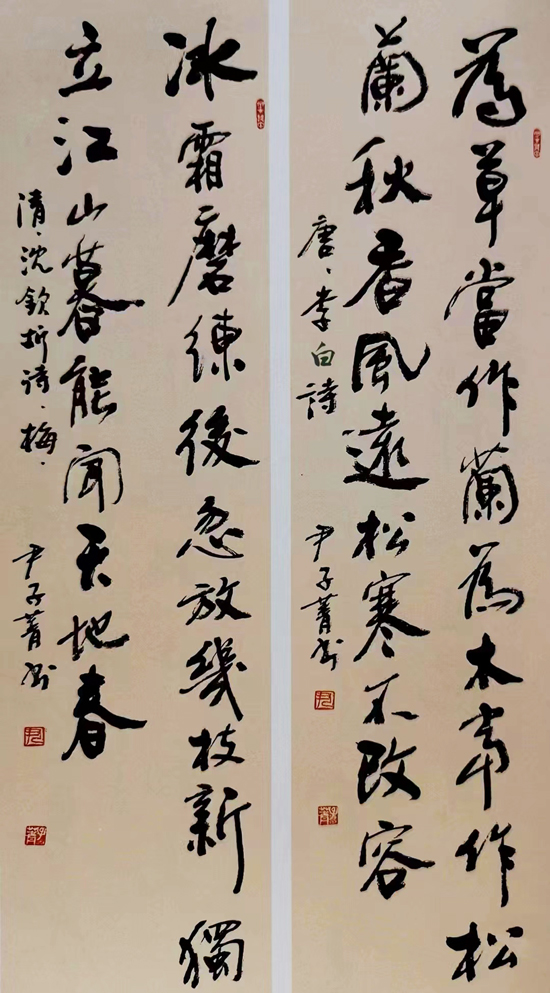 為草當作蘭為木當作松
蘭秋香風遠松寒不改容
唐、李白詩
尹子菁書
冰霜磨練後忽放幾枝新獨
立江山暮能聞天地春
清、沈欽圻詩、梅、
尹子菁書